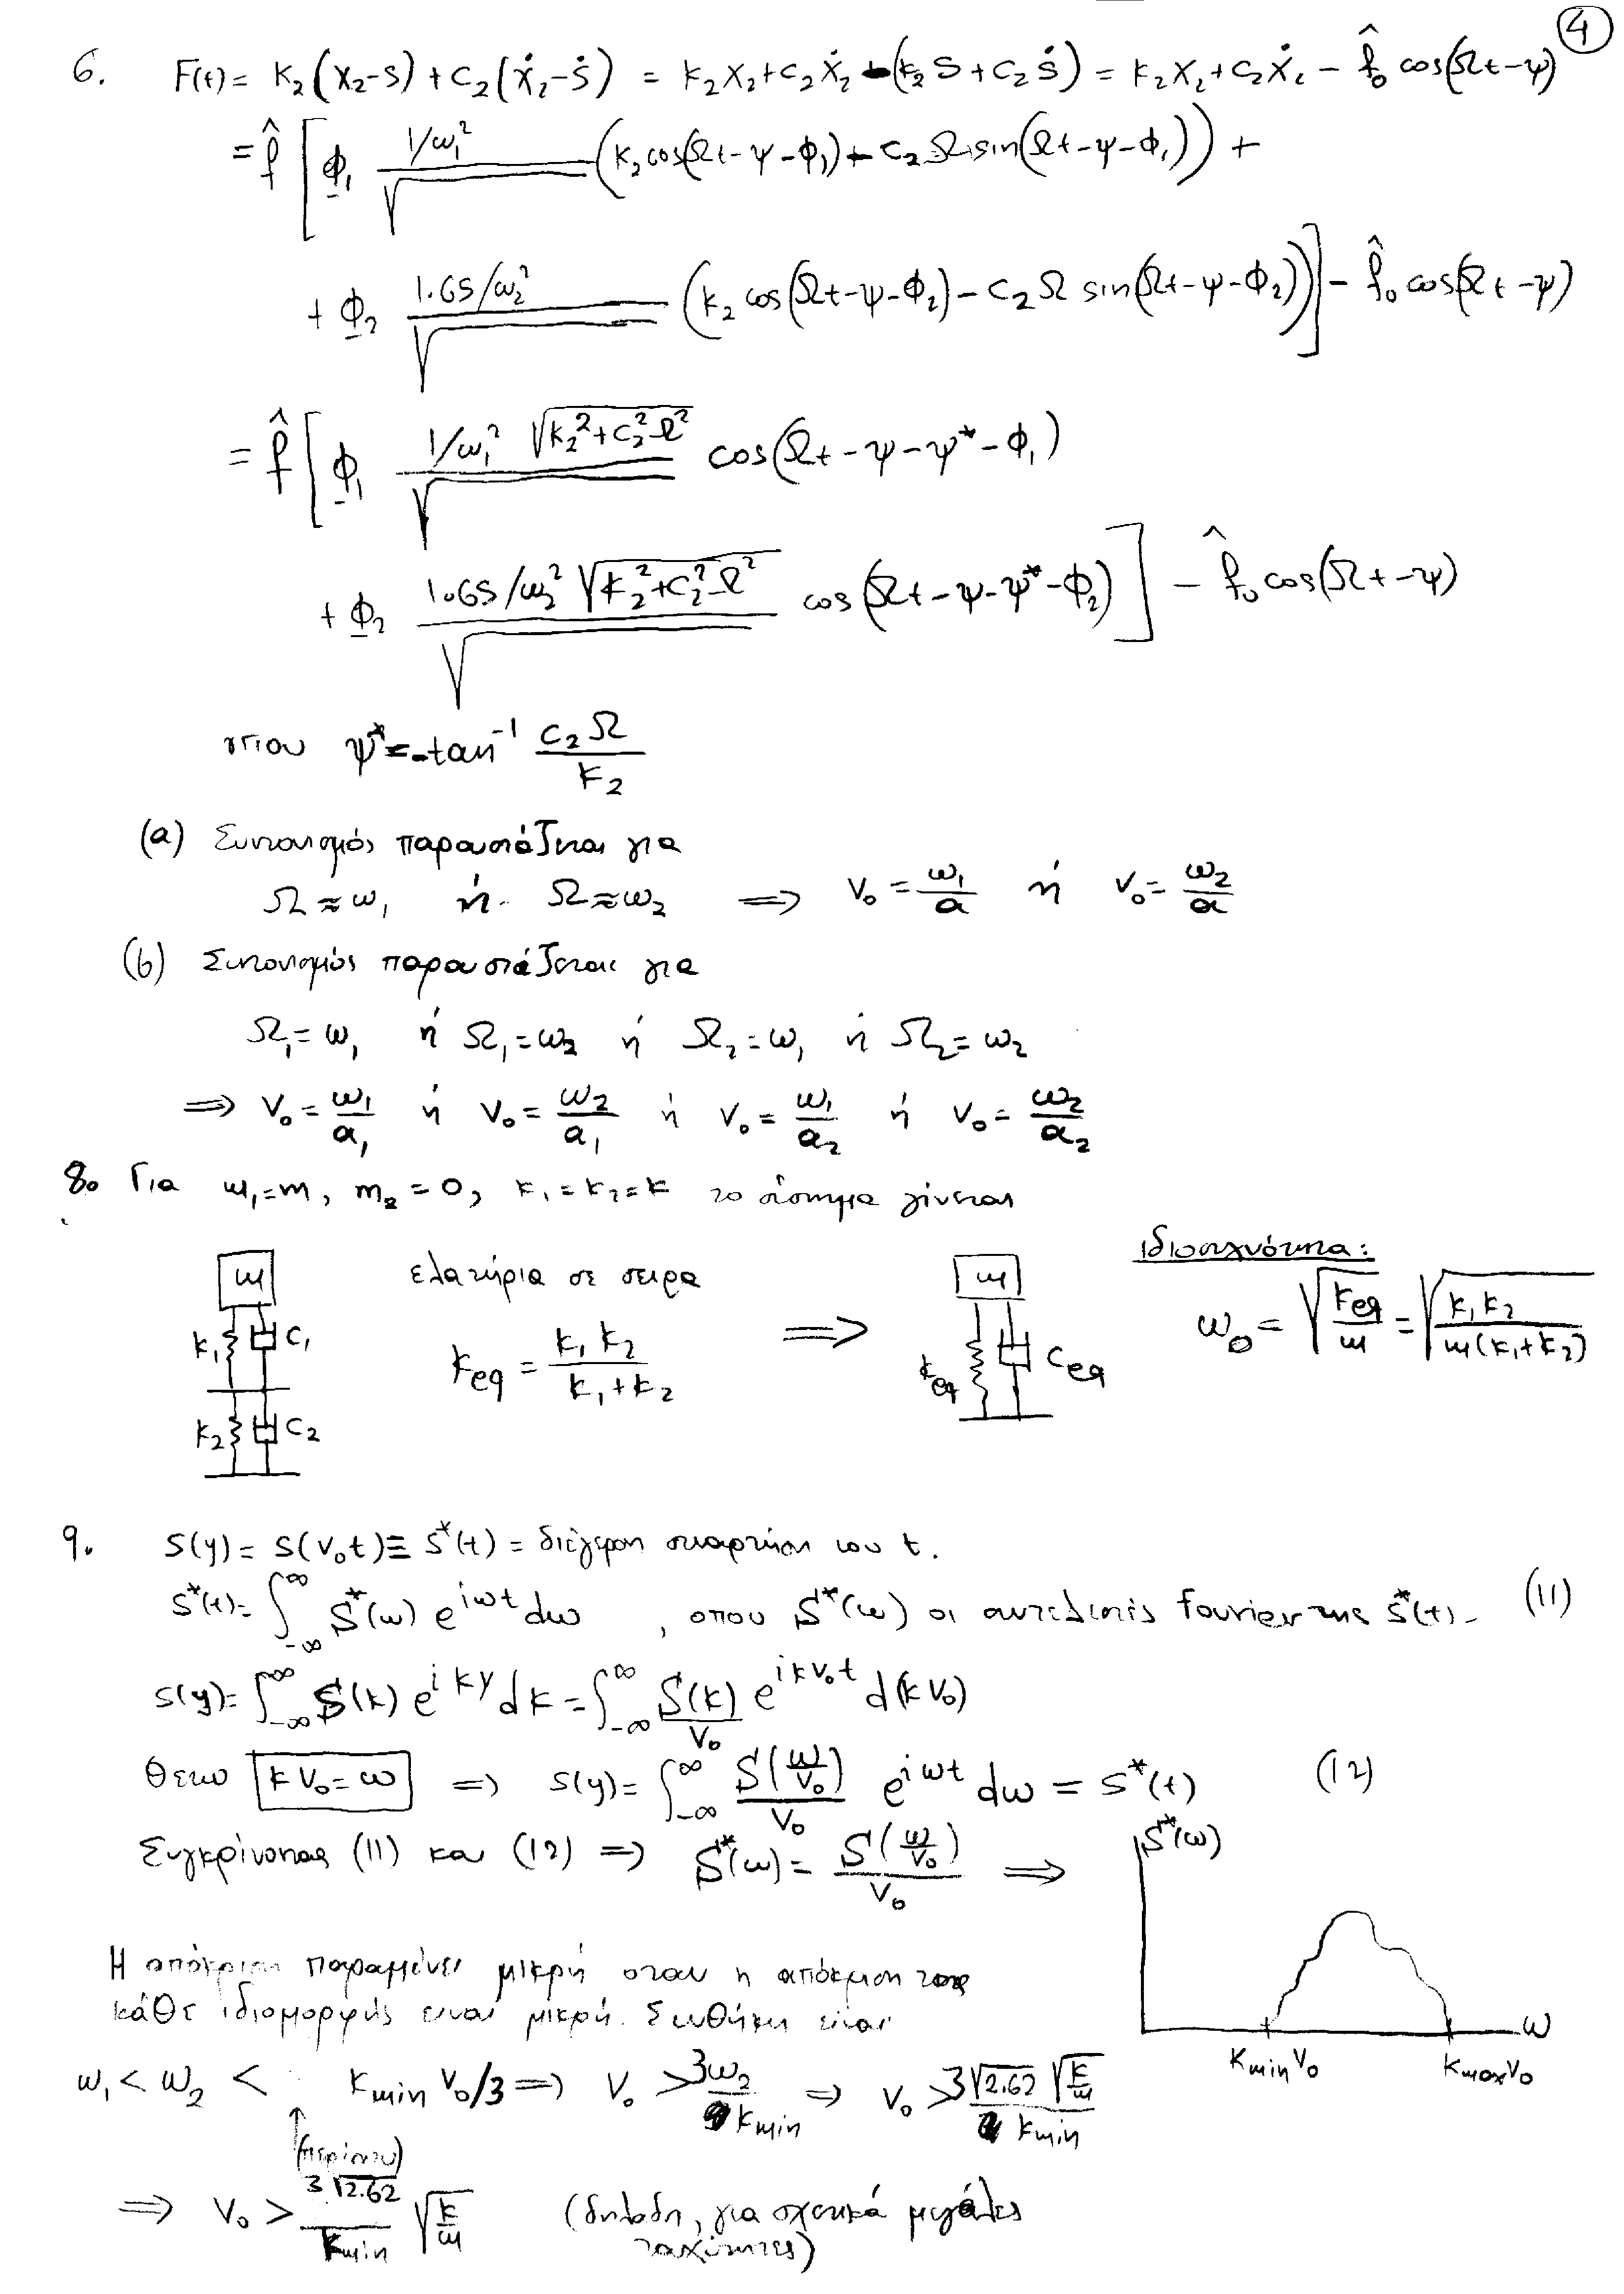 4
6. F(t) = k₂(x₂-s) + c₂(ẋ₂-ṡ) = k₂x₂+c₂ẋ₂ - (k₂s+c₂ṡ) = k₂x₂+c₂ẋ₂ - f̂₀ cos(Ωt-ψ)
= f̂ [ Φ₁ 1/ω₁² / √ (k₂ cos(Ωt-ψ-φ₁) - c₂Ω sin(Ωt-ψ-φ₁)) +
+ Φ₂ 1.65/ω₂² / √ (k₂ cos(Ωt-ψ-φ₂) - c₂Ω sin(Ωt-ψ-φ₂)) ] - f̂₀ cos(Ωt-ψ)
= f̂ [ Φ₁ 1/ω₁² √(k₂²+c₂²Ω²) / √ cos(Ωt-ψ-ψ*-φ₁)
+ Φ₂ 1.65/ω₂² √(k₂²+c₂²Ω²) / √ cos(Ωt-ψ-ψ*-φ₂) ] - f̂₀ cos(Ωt-ψ)
όπου ψ* = -tan⁻¹ c₂Ω / k₂
(a) Συντονισμός παρουσιάζεται για
Ω≈ω₁ ή Ω≈ω₂ ⟹ V₀ = ω₁/a ή V₀ = ω₂/a
(b) Συντονισμός παρουσιάζεται για
Ω₁=ω₁ ή Ω₁=ω₂ ή Ω₂=ω₁ ή Ω₂=ω₂
⟹ V₀ = ω₁/a₁ ή V₀ = ω₂/a₁ ή V₀ = ω₁/a₂ ή V₀ = ω₂/a₂
8. Για m₁=m, m₂=0, k₁=k₂=k το σύστημα γίνεται
m
k₁ c₁
k₂ c₂
ελατήρια σε σειρα
k_eq = k₁k₂ / (k₁+k₂)
⟹
m
k_eq c_eq
ιδιοσυχνότητα:
ω₀ = √(k_eq/m) = √(k₁k₂ / m(k₁+k₂))
9. s(y) = s(V₀t) ≡ s*(t) = διέγερση συναρτήσει του t.
s*(t) = ∫_{-∞}^{∞} S*(ω) e^{iωt} dω , οπου S*(ω) οι συντελεστές fourier της s*(t). (11)
s(y) = ∫_{-∞}^{∞} S(k) e^{iky} dk = ∫_{-∞}^{∞} S(k)/V₀ e^{ikV₀t} d(kV₀)
Θετω kV₀=ω ⟹ s(y) = ∫_{-∞}^{∞} S(ω/V₀)/V₀ e^{iωt} dω = s*(t) (12)
Συγκρίνοντας (11) και (12) ⟹ S*(ω) = S(ω/V₀)/V₀ ⟹
S*(ω)
ω
k_min V₀ k_max V₀
Η απόκριση παραμένει μικρή οταν η απόκριση της
κάθε ιδιομορφής ειναι μικρή. Συνθήκη είναι
ω₁ < ω₂ < k_min V₀/3 ⟹ V₀ > 3ω₂ / k_min ⟹ V₀ > 3√2.62 √(k/m) / k_min
(περίπου)
⟹ V₀ > 3√2.62 / k_min √(k/m) (δηλαδη, για σχετικά μεγάλες
ταχύτητες)